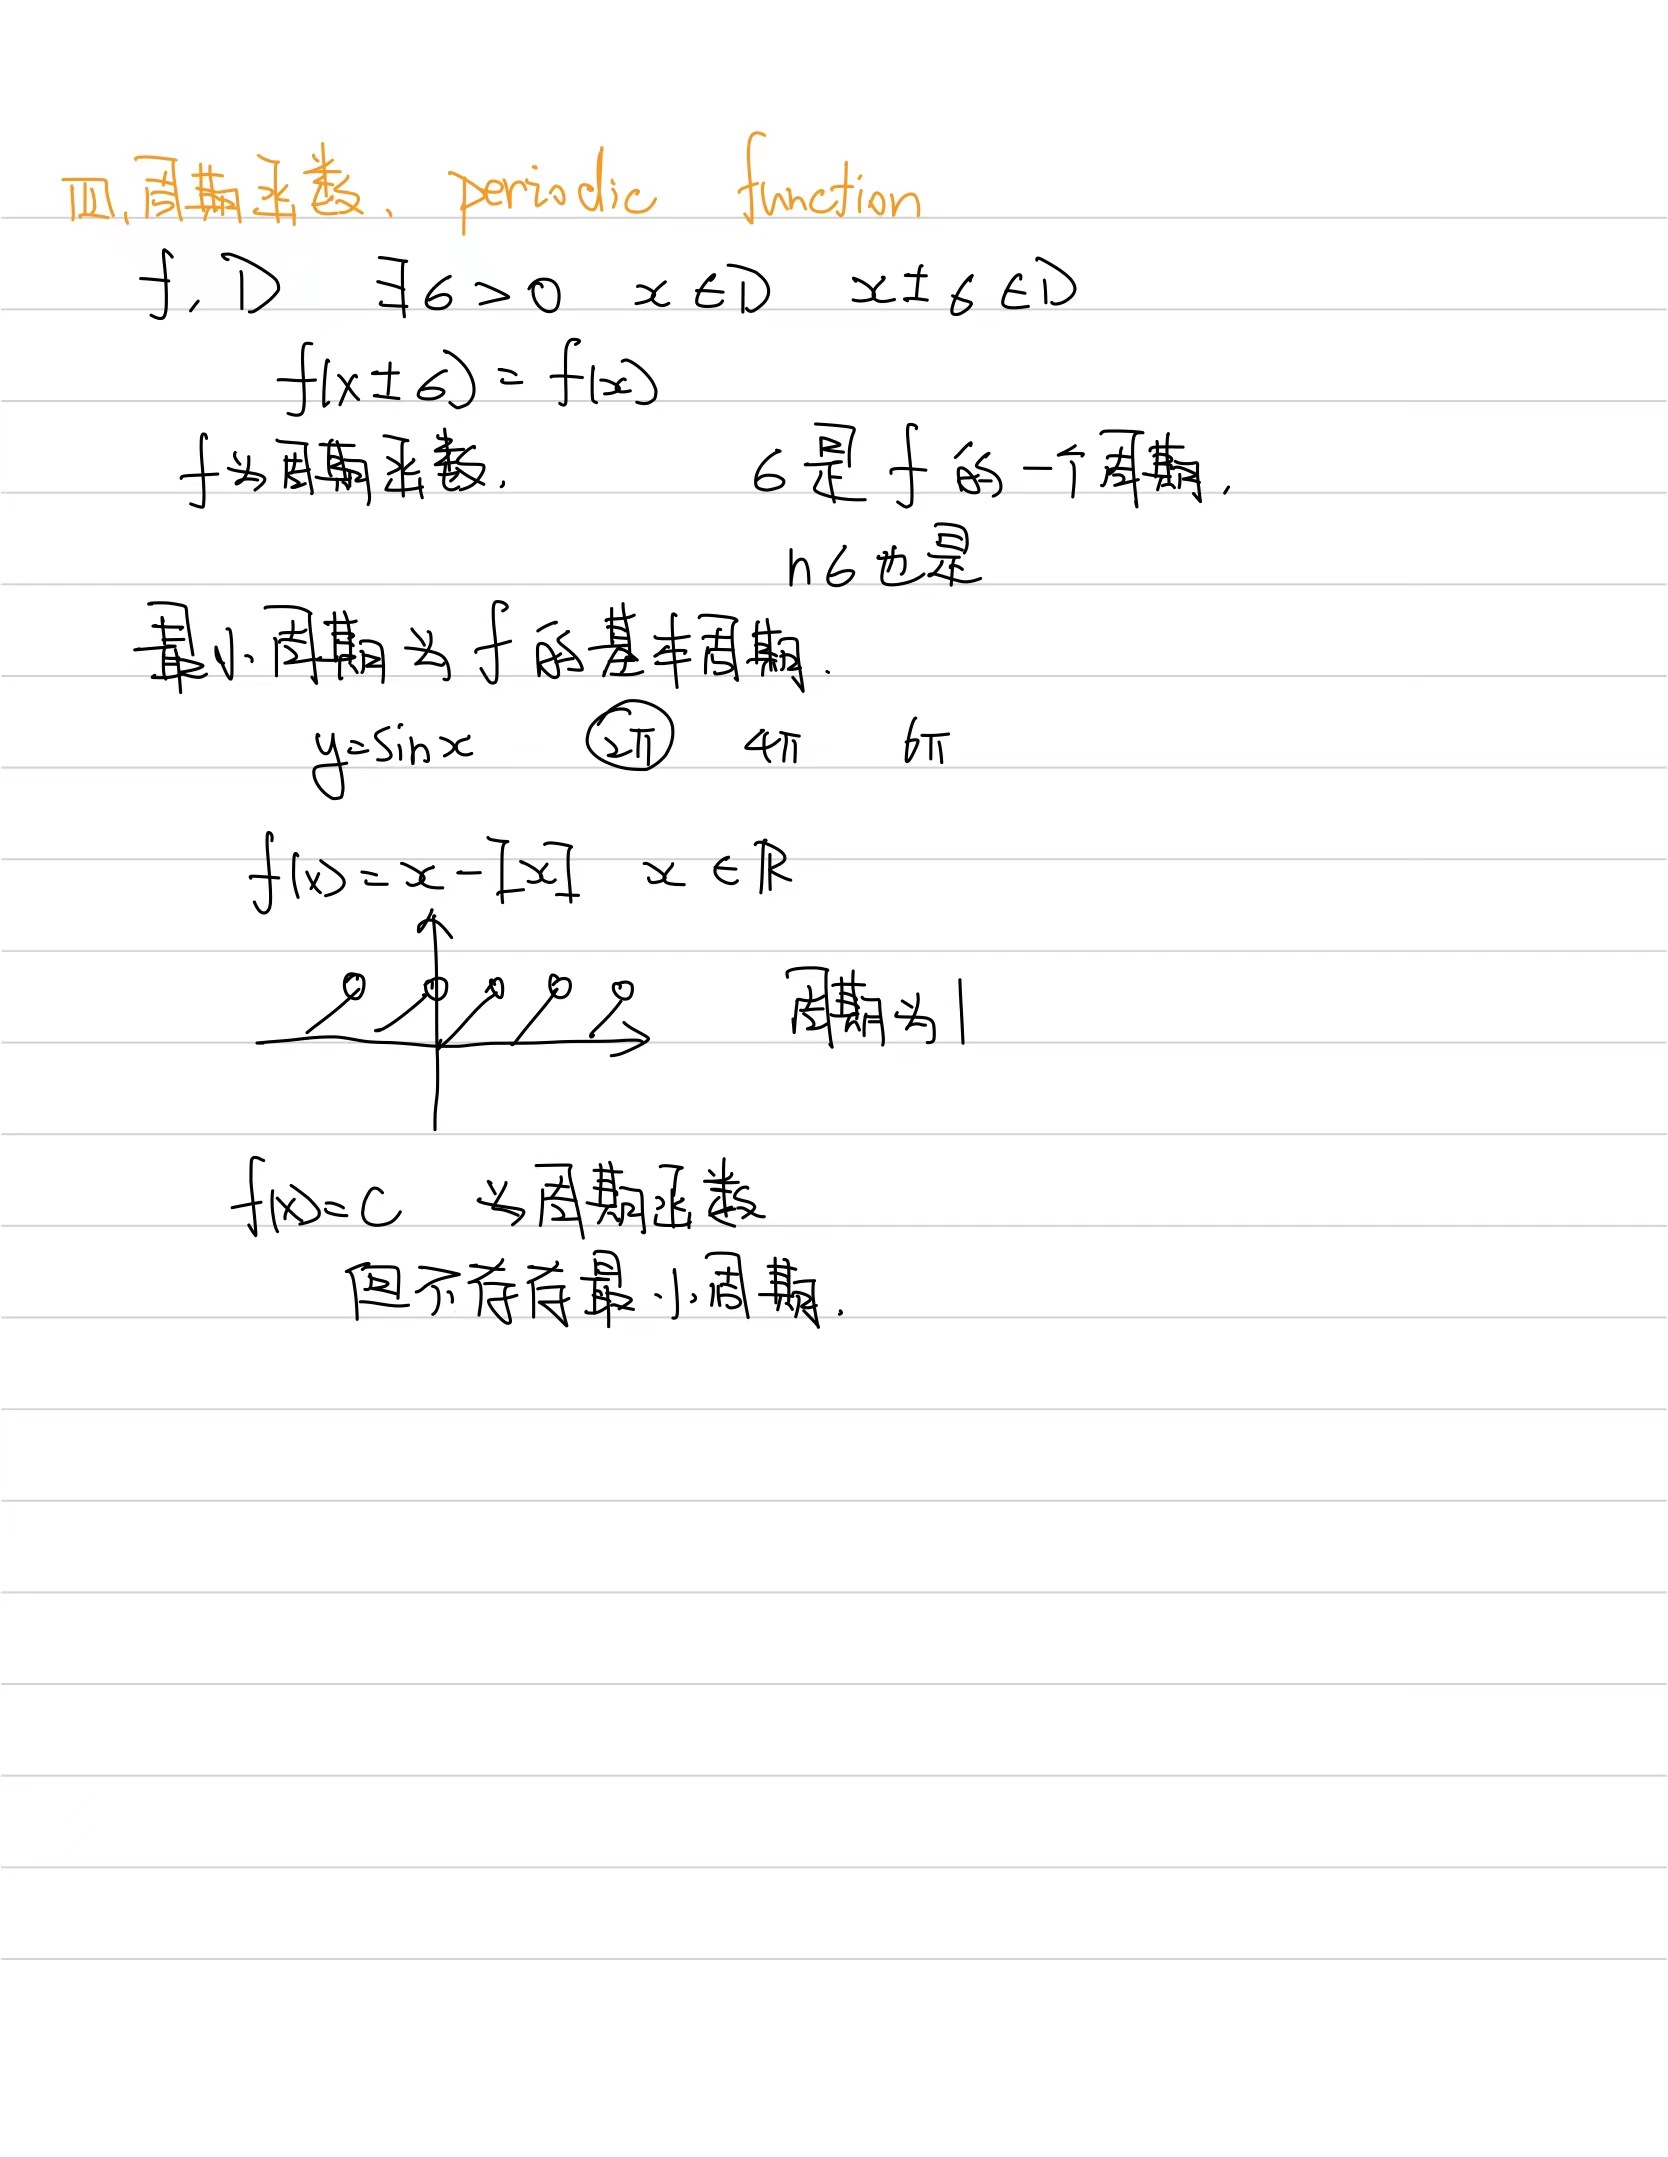 四、周期函数. periodic function
f, D ∃σ>0 x∈D x±σ∈D
f(x±σ)=f(x)
f为周期函数. σ是f的一个周期,
nσ也是
最小周期为f的基本周期.
y=sinx 2π 4π 6π
f(x)=x-[x] x∈ℝ
周期为1
f(x)=C 为周期函数
但不存在最小周期.